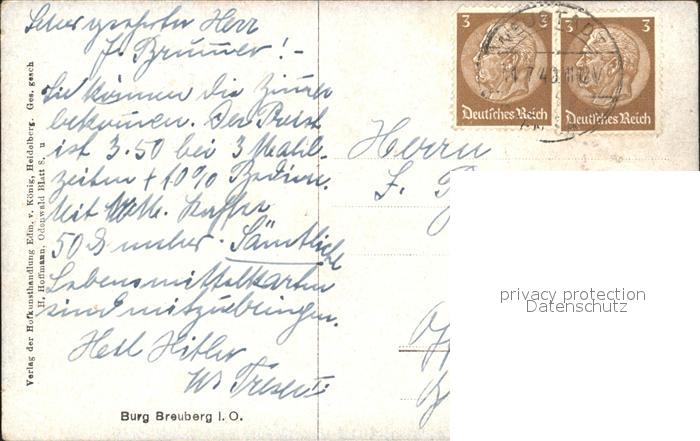 Sehr geehrter Herr
J. Brunner! -
Sie können die Zimmer
bekommen. Der Preis
ist 3.50 bei 3 Mahl-
zeiten + 10% Bedien.
Mit Kaffee
50 mehr. Sämtliche
Lebensmittelkarten
sind mitzubringen.
Heil Hitler
Burg Breuberg I. O.
Verlag der Hofkunsthandlung Edm. v. König, Heidelberg. Ges. gesch
H. Hoffmann, Odenwald Blatt 8. u
3 3 3
Deutsches Reich Deutsches Reich
7.40
Herrn
privacy protection
Datenschutz